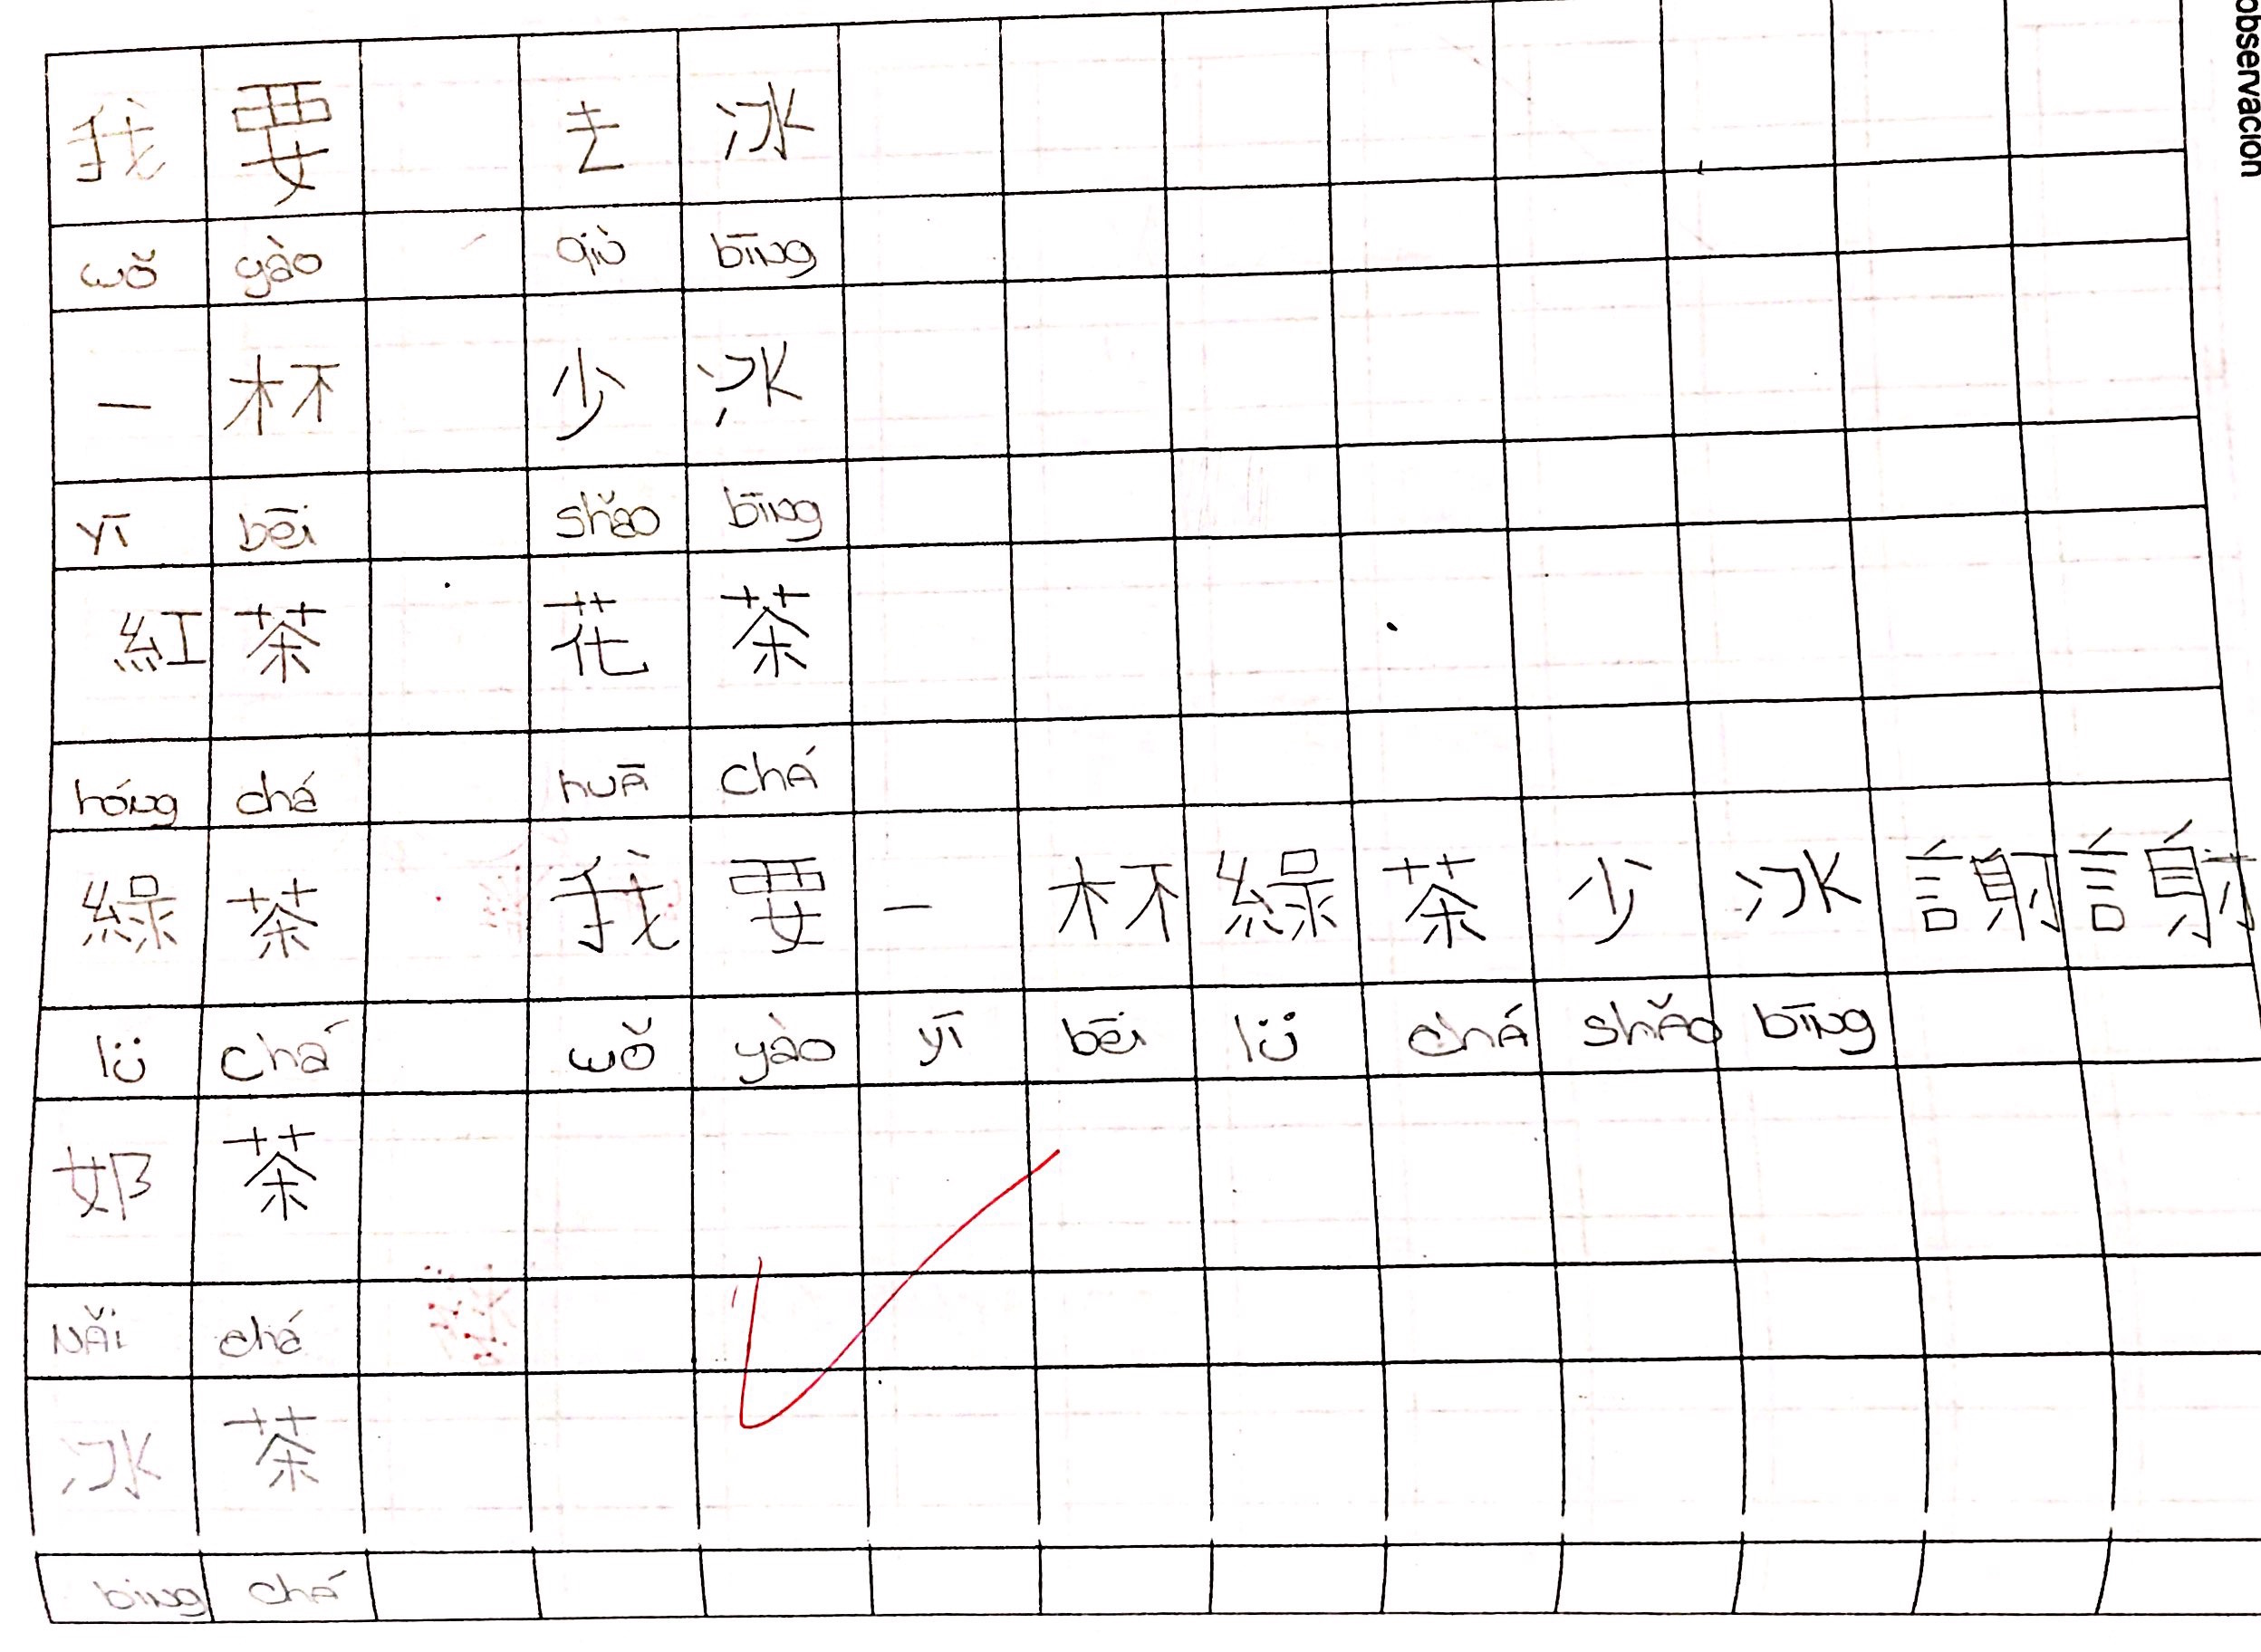 我 要 去 冰
wǒ yào qiù bīng
一 杯 少 冰
yī bēi shǎo bīng
紅 茶 花 茶
hóng chá huā chá
綠 茶 我 要 一 杯 綠 茶 少 冰 謝 謝
lü chá wǒ yào yī bēi lü chá shǎo bīng
奶 茶
Nǎi chá
冰 茶
bing chá
observación